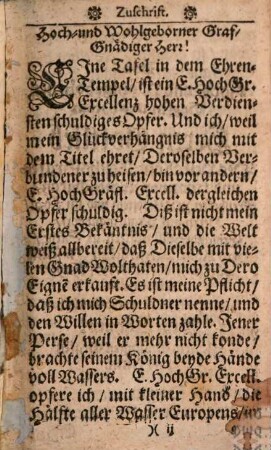 Zuschrift.
Hoch- und Wohlgeborner Graf-
Gnädiger Herr!
EINe Tafel in dem Ehren-
Tempel / ist ein E. Hoch Gr.
Excellenz hohen Verdien-
sten schuldiges Opfer. Und ich / weil
mein Glückverhängnis mich mit
dem Titel ehret / Deroselben Ver-
bundener zu heisen / bin vor andern /
E. HochGräfl. Excell. dergleichen
Opfer schuldig. Diß ist nicht mein
Erstes Bekäntnis / und die Welt
weiß allbereit / daß Dieselbe mit vie-
len Gnad Wolthaten / mich zu Dero
Eignē erkauft. Es ist meine Pflicht /
daß ich mich Schuldner nenne / und
den Willen in Worten zahle. Jener
Perse / weil er mehr nicht konde /
brachte seinem König beyde Hände
voll Wassers. E. HochGr. Excell.
opfere ich / mit kleiner Hand / die
Hälfte aller Wasser Europens / in
)( ij